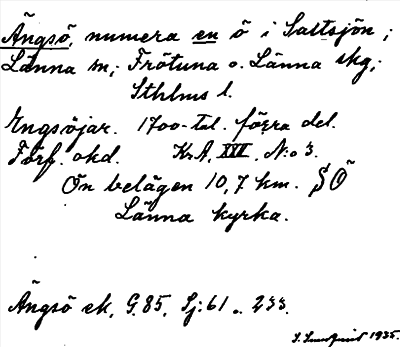 Ängsö, numera en ö i Saltsjön;
Länna sn; Frötuna o. Länna skg;
Sthlms l.
Engsöjar. 1700-tal. förra del.
Förf. okd. KrA, XVI, N:o 3.
Ön belägen 10,7 km. SÖ
Länna kyrka.
Ängsö ek, G.85, Sj:61 o. 233.
1935.